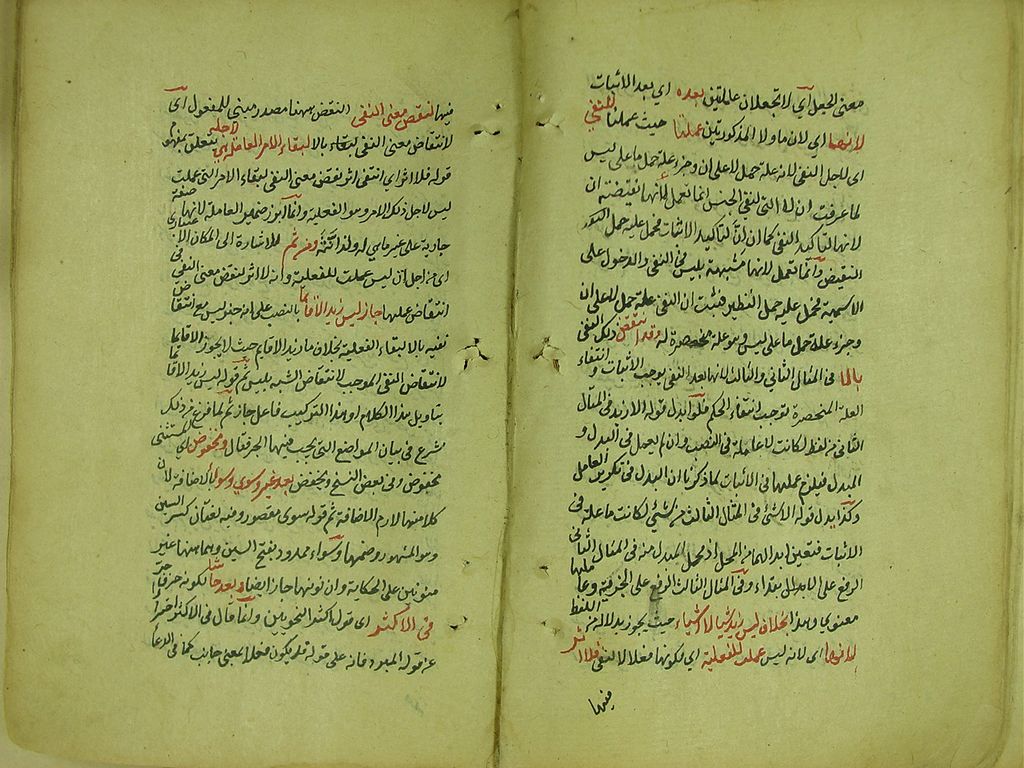 معنى الجعل اى لا تجعلان عاملتين بعده اي بعد الاثبات
لانهما اي لان ما ولا المذكورتين عملتا حيث عملتا للنفي
اى لاجل النفى لانه علة حمل لا على ان وجزء علة حمل ما على ليس
لما عرفت ان لا التى لنفي الجنس انما تعمل لانها نقيضة ان
لانها لتاكيد النفى كما ان انّ لتاكيد الاثبات فحمل عليه حمل
النقيض وانما تعمل لانها مشبهة بليس في النفى والدخول على
الاسمية فحمل عليه حمل النظير فثبت ان النفى علة حمل لا على ان
وجزء علة حمل ما على ليس وهو علة منحصرة له وقد انتقض ذلك النفى
بالا فى المثال الثانى والثالث لانها بعد النفى يوجب الاثبات وانتفاء
العلة المنحصرة توجب انتفاء الحكم فلو ابدل قوله الا زيد فى المثال
الثانى من لفظ لكانت لا عاملة فى النصب وان لم يعمل فى المبدل و
المبدل فيلزم عملها فى الاثبات لما ذكرنا ان البدل فى تكرير العامل
وكذا ابدل قوله الا شئ فى المثال الثالث من شئ لكانت ما عاملة فى
الاثبات فتعين ابدالهما من المحل اذ محل المبدل منه فى المثال الثانى
الرفع على الابتداء وفى المثال الثالث الرفع على الخبرية وعاملهما
معنوي وهذا بخلاف ليس زيد شيئا الا شيئا حيث يجوز بدلا من اللفظ
لانها اى لانه ليس عملت للفعلية اي لكونها فعلا لا للنفى فلا اثر
فيها
فيها لنقض معنى النفى النقض ههنا مصدر مبنى للمفعول اى
لانتقاض معنى النفى لبقاء بالا لبقاء الامر العاملة هي لاجله يتعلق بمنزلة
قوله فلا اثر اي انتفى اثر نقض معنى النفى لبقاء الامر التى عملت
ليس لاجل ذلك الامر وهو الفعلية وانما ابرز ضمير العاملة لانها صفة
جارية على غير ما هي له ولذا ومن ثم للاشارة الى المكان الاعتبارى
اى من اجل ان ليس عملت للفعلية وانه لا اثر لنقض معنى النفى فى
انتقاض عملها جاز ليس زيد الا قائما بالنصب على انه خبر ليس مع انتقاض
نفيه بالا لبقاء الفعلية بخلاف ما زيد الا قائم حيث لا يجوز الا قائما
لانتقاض النفى الموجب لانتقاض الشبه بليس ثم قوله ليس زيد الا قائما
بتاويل هذا الكلام او هذا التركيب فاعل جاز ثم لما فرغ من ذلك
شرع فى بيان المواضع التى يجب فيها الجر فقال ومخفوض اى المستثنى
مخفوض وفى بعض النسخ ويخفض بعد غير وسوى وسواء بالاضافة لان
كلا منها لازم الاضافة ثم قوله سوى مقصور وفيه لغتان كسر السين
وهو المشهور وضمها وسواء ممدود بفتح السين وهما منها غير
منونين على الحكاية وان نونهما جاز ايضا وبعد حاشا لكونه حرف جر
فى الاكثر اى قول اكثر النحويين وانما قال فى الاكثر احترازا
عن قول المبرد فانه على قوله قد يكون فعلا بمعنى جانب كما فى الدعا